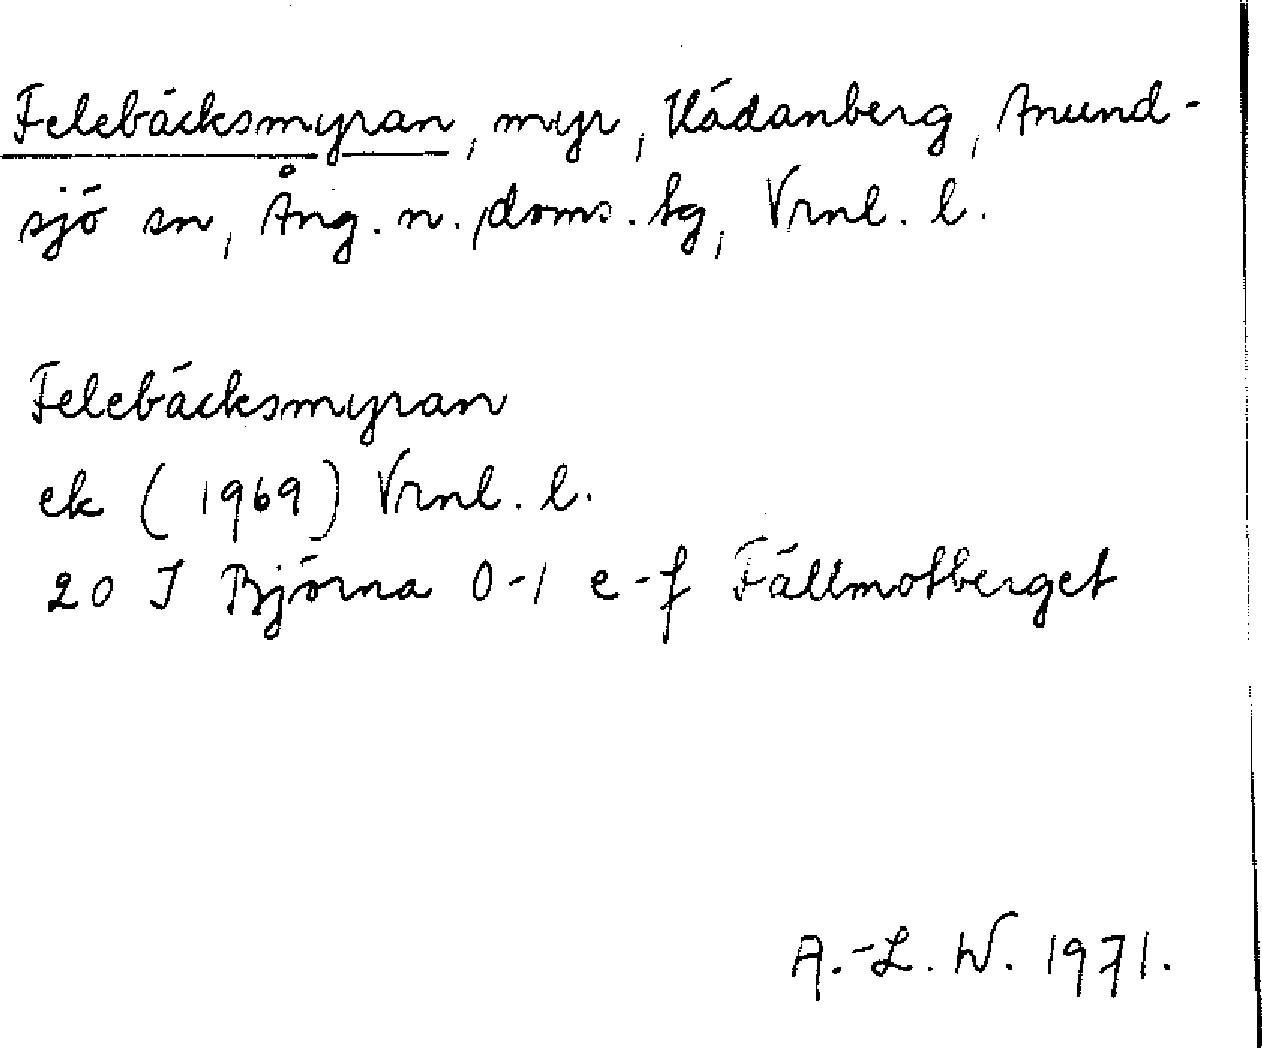 Felebäcksmyran, myr, Kädanberg, Anund-
sjö sn, Ång. n. doms. sg, Vrnl. l.
Felebäcksmyran
ek (1969) Vrnl. l.
20 J Björna 0-1 e-f Fällmotberget
A.-L. W. 1971.